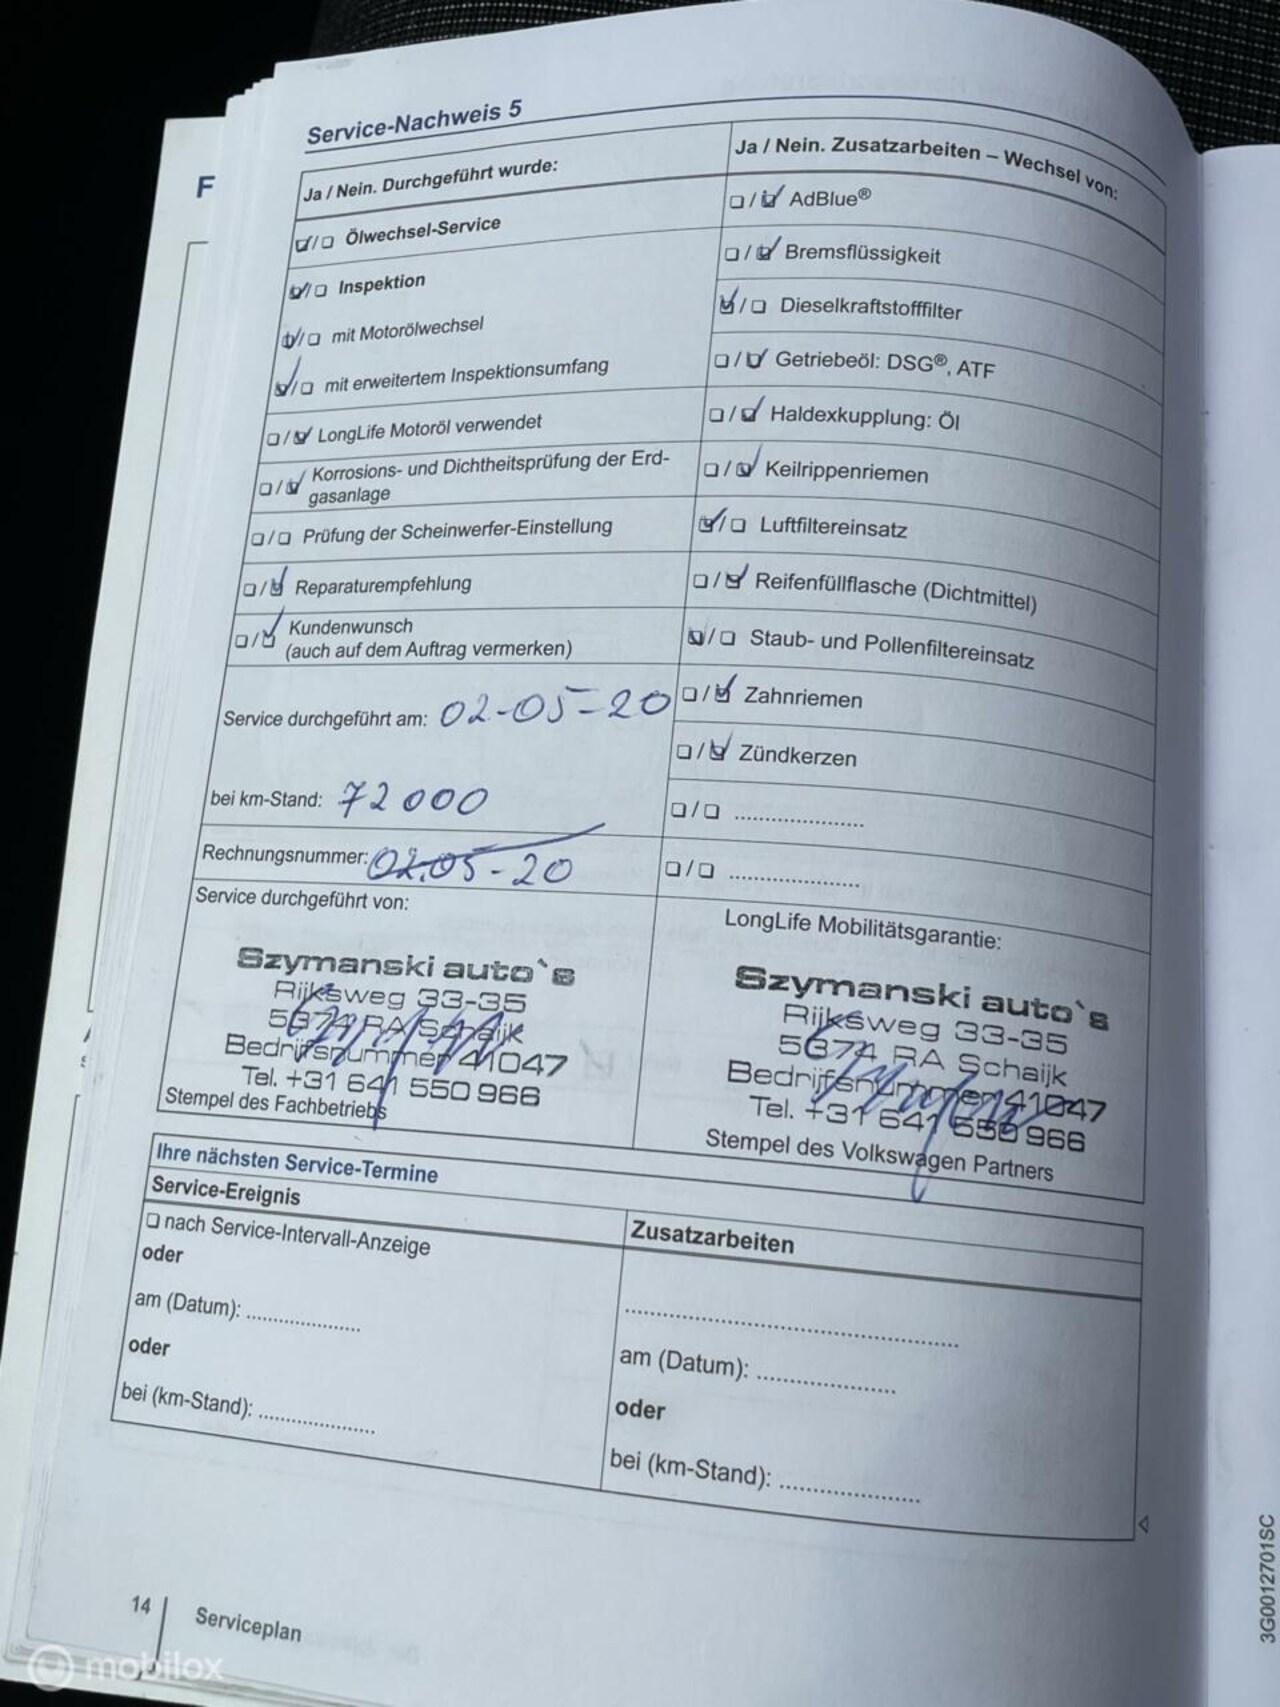 Service-Nachweis 5
F
Ja / Nein. Durchgeführt wurde:
Ölwechsel-Service
Inspektion
mit Motorölwechsel
mit erweitertem Inspektionsumfang
LongLife Motoröl verwendet
Korrosions- und Dichtheitsprüfung der Erd-
gasanlage
Prüfung der Scheinwerfer-Einstellung
Reparaturempfehlung
Kundenwunsch
(auch auf dem Auftrag vermerken)
Service durchgeführt am: 02-05-20
bei km-Stand: 72000
Rechnungsnummer: 02.05-20
Service durchgeführt von:
Szymanski auto`s
Rijksweg 33-35
5374 RA Schaijk
Bedrijfsnummer 41047
Tel. +31 641 550 966
Stempel des Fachbetriebs
Ja / Nein. Zusatzarbeiten – Wechsel von:
AdBlue®
Bremsflüssigkeit
Dieselkraftstofffilter
Getriebeöl: DSG®, ATF
Haldexkupplung: Öl
Keilrippenriemen
Luftfiltereinsatz
Reifenfüllflasche (Dichtmittel)
Staub- und Pollenfiltereinsatz
Zahnriemen
Zündkerzen
LongLife Mobilitätsgarantie:
Szymanski auto`s
Rijksweg 33-35
5374 RA Schaijk
Bedrijfsnummer 41047
Tel. +31 641 550 966
Stempel des Volkswagen Partners
Ihre nächsten Service-Termine
Service-Ereignis
nach Service-Intervall-Anzeige
oder
am (Datum): ....................
oder
bei (km-Stand): ....................
Zusatzarbeiten
am (Datum): ....................
oder
bei (km-Stand): ....................
14
Serviceplan
3G0012701SC
mobilox